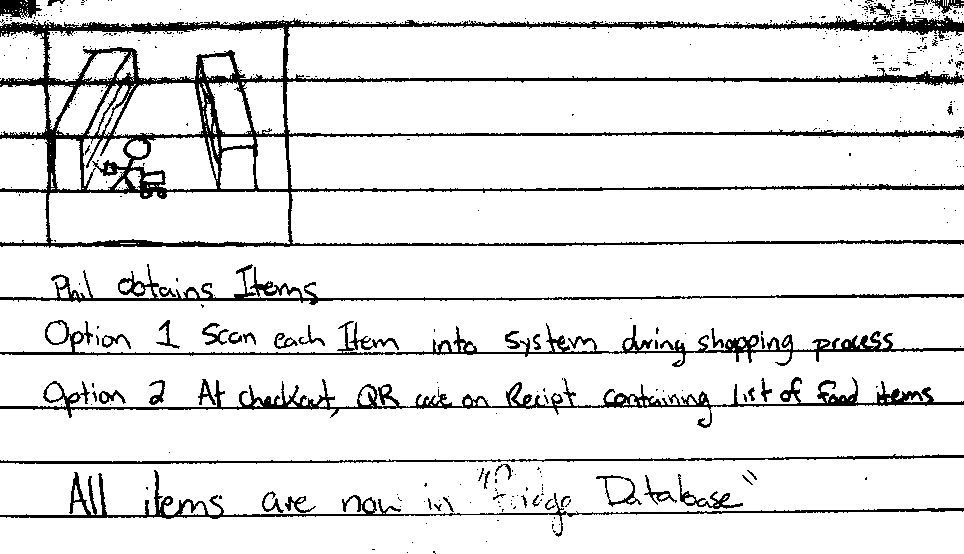 Phil obtains Items
Option 1 Scan each Item into System during shopping process
Option 2 At checkout, QR code on Recipt containing list of food items
All items are now in "Fridge Database"